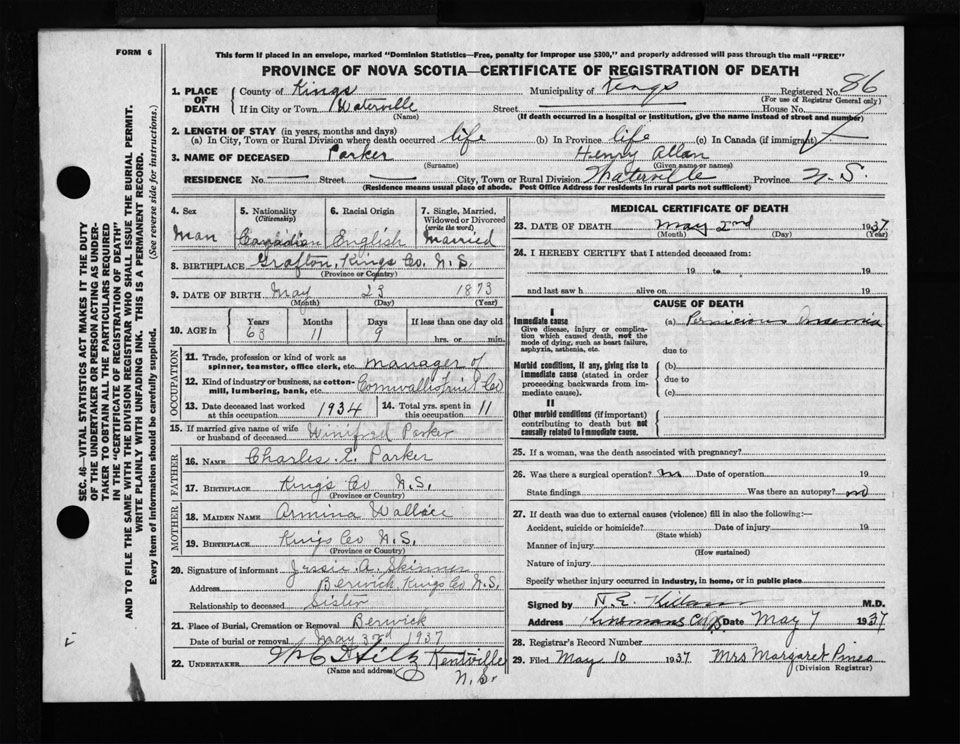 FORM 6
This form if placed in an envelope, marked "Dominion Statistics—Free, penalty for improper use $300," and properly addressed will pass through the mail "FREE"
PROVINCE OF NOVA SCOTIA—CERTIFICATE OF REGISTRATION OF DEATH
1. PLACE OF DEATH County of Kings Municipality of Kings Registered No. 86
(For use of Registrar General only)
If in City or Town Waterville Street House No.
(Name) (If death occurred in a hospital or institution, give the name instead of street and number)
2. LENGTH OF STAY (in years, months and days)
(a) In City, Town or Rural Division where death occurred life (b) In Province life (c) In Canada (if immigrant)
3. NAME OF DECEASED Parker Henry Allan
(Surname) (Given name or names)
RESIDENCE No. Street City, Town or Rural Division Waterville Province N.S.
(Residence means usual place of abode. Post Office Address for residents in rural parts not sufficient)
4. Sex 5. Nationality (Citizenship) 6. Racial Origin 7. Single, Married, Widowed or Divorced (write the word)
Man Canadian English Married
8. BIRTHPLACE Grafton, Kings Co. N.S.
(Province or Country)
9. DATE OF BIRTH May 23 1873
(Month) (Day) (Year)
10. AGE in Years Months Days If less than one day old
63 11 9 hrs. or min.
OCCUPATION
11. Trade, profession or kind of work as spinner, teamster, office clerk, etc. Manager of
12. Kind of industry or business, as cotton-mill, lumbering, bank, etc. Co
13. Date deceased last worked at this occupation 1934 14. Total yrs. spent in this occupation 11
15. If married give name of wife or husband of deceased Winifred Parker
FATHER
16. NAME Charles E. Parker
17. BIRTHPLACE Kings Co N.S.
(Province or Country)
MOTHER
18. MAIDEN NAME Armina Wallace
19. BIRTHPLACE Kings Co N.S.
(Province or Country)
20. Signature of informant Jessie A. Skinner
Address Berwick, Kings Co N.S.
Relationship to deceased Sister
21. Place of Burial, Cremation or Removal Berwick
Date of burial or removal May 3rd 1937
22. UNDERTAKER Kentville
(Name and address) N.S.
MEDICAL CERTIFICATE OF DEATH
23. DATE OF DEATH May 2nd 1937
(Month) (Day) (Year)
24. I HEREBY CERTIFY that I attended deceased from:
19 to 19
and last saw h alive on 19
CAUSE OF DEATH
I
Immediate cause (a) Pernicious Anaemia
Give disease, injury or complication which caused death, not the mode of dying, such as heart failure, asphyxia, asthenia, etc. due to
Morbid conditions, if any, giving rise to immediate cause (stated in order proceeding backwards from immediate cause). (b) due to (c)
II
Other morbid conditions (if important) contributing to death but not causally related to immediate cause.
25. If a woman, was the death associated with pregnancy?
26. Was there a surgical operation? Date of operation 19
State findings Was there an autopsy? no
27. If death was due to external causes (violence) fill in also the following:—
Accident, suicide or homicide? Date of injury 19
(State which)
Manner of injury
(How sustained)
Nature of injury
Specify whether injury occurred in industry, in home, or in public place
Signed by M.D.
Address Date May 7 1937
28. Registrar's Record Number
29. Filed May 10 1937 Mrs Margaret
(Division Registrar)
SEC. 46—VITAL STATISTICS ACT MAKES IT THE DUTY
OF THE UNDERTAKER OR PERSON ACTING AS UNDER-
TAKER TO OBTAIN ALL THE PARTICULARS REQUIRED
IN THE "CERTIFICATE OF REGISTRATION OF DEATH"
AND TO FILE THE SAME WITH THE DIVISION REGISTRAR WHO SHALL ISSUE THE BURIAL PERMIT.
WRITE PLAINLY WITH UNFADING INK. THIS IS A PERMANENT RECORD.
Every item of information should be carefully supplied. (See reverse side for instructions.)